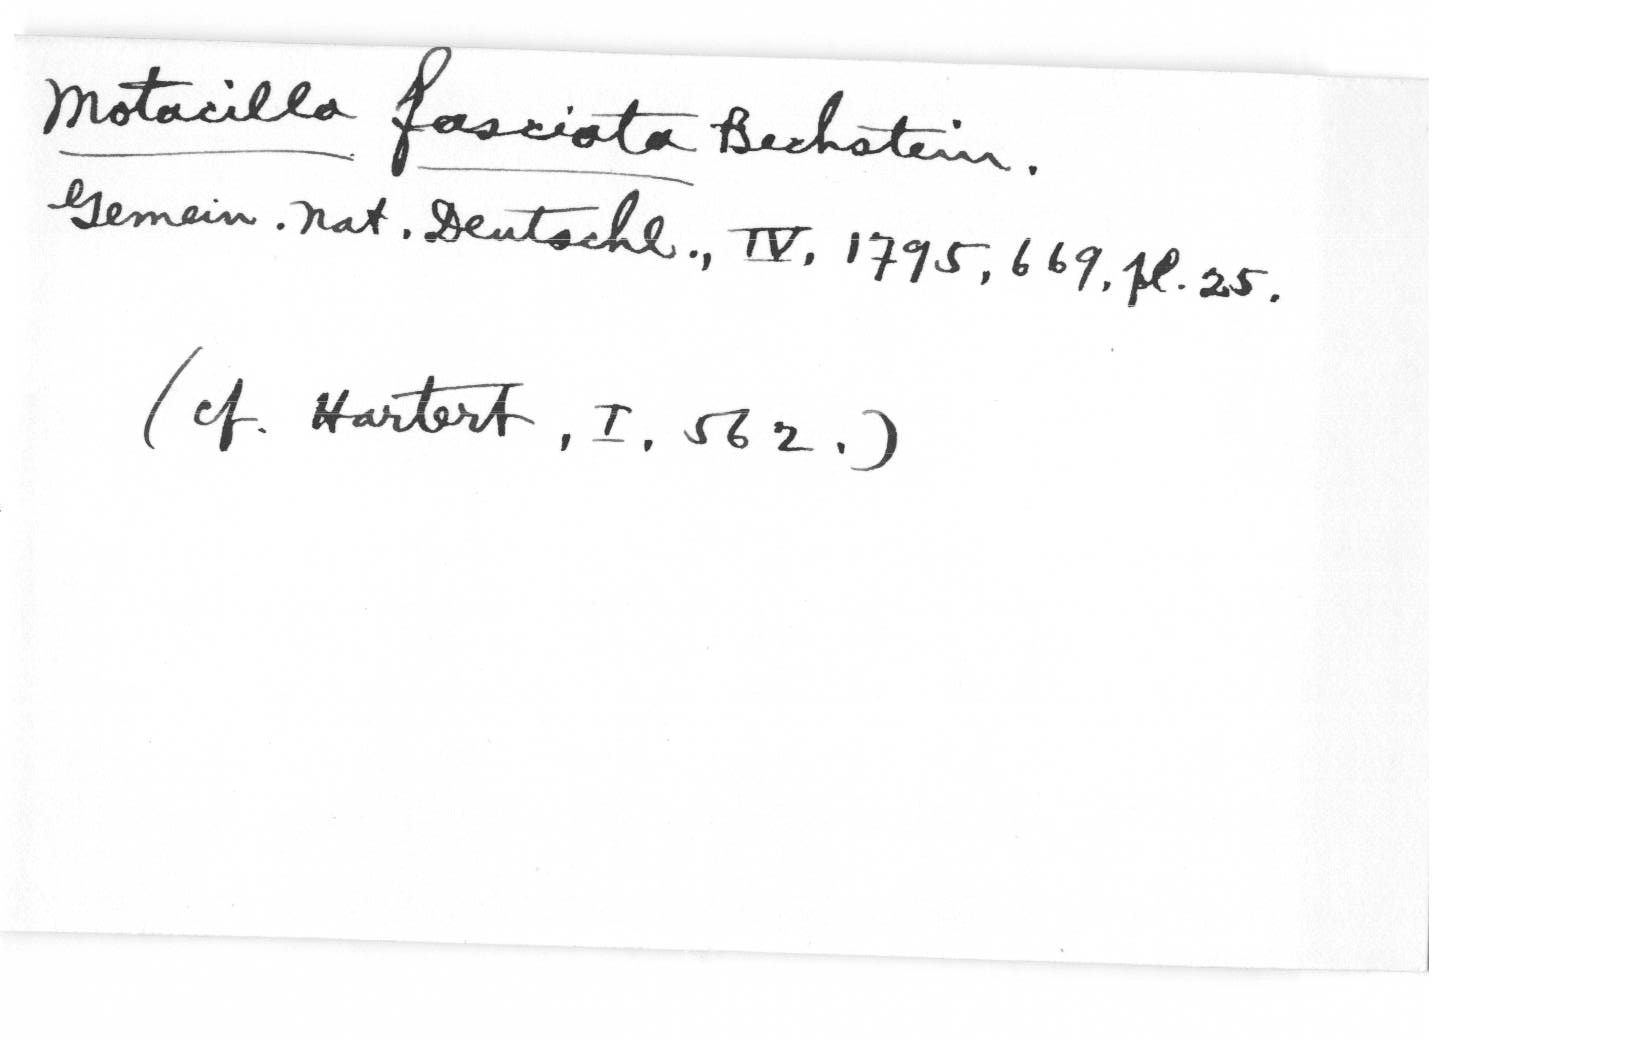 Motacilla fasciata Bechstein.
Gemein. Nat. Deutschl., IV, 1795, 669, pl. 25.
(cf. Hartert, I, 562.)